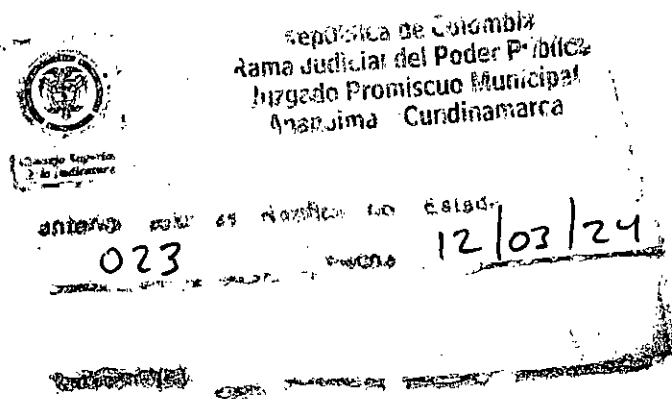 República de Colombia
Rama Judicial del Poder Público
Juzgado Promiscuo Municipal
Anapoima Cundinamarca
Consejo Superior
de la Judicatura
anterior auto se notifica Estado
023 12/03/24